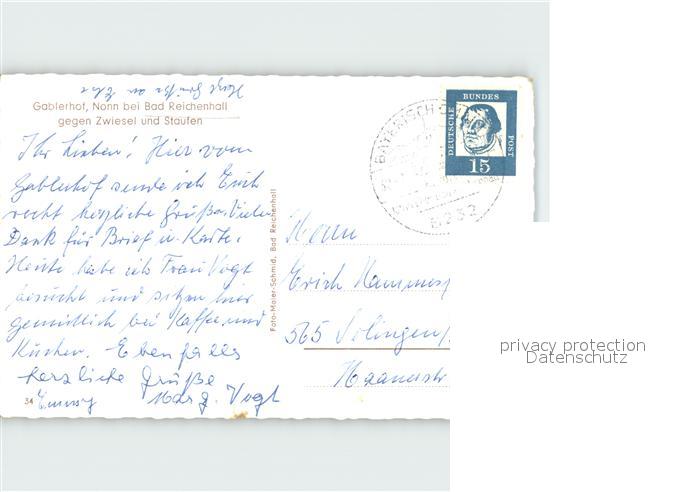 Herzl. Grüße an Elke
Gablerhof, Nonn bei Bad Reichenhall
gegen Zwiesel und Staufen
Ihr Lieben! Hier vom
Gablerhof sende ich Euch
recht herzliche Grüße. Vielen
Dank für Brief u. Karte.
Heute habe ich Frau Vogt
besucht und sitzen hier
gemütlich bei Kaffee und
Kuchen. Ebenfalls
herzliche Grüße
Marg. Vogt
34
Foto-Maier-Schmid, Bad Reichenhall
DEUTSCHE BUNDES POST
15
BAYERISCH
8232
Herrn
Erich
565 Solingen
privacy protection
Datenschutz